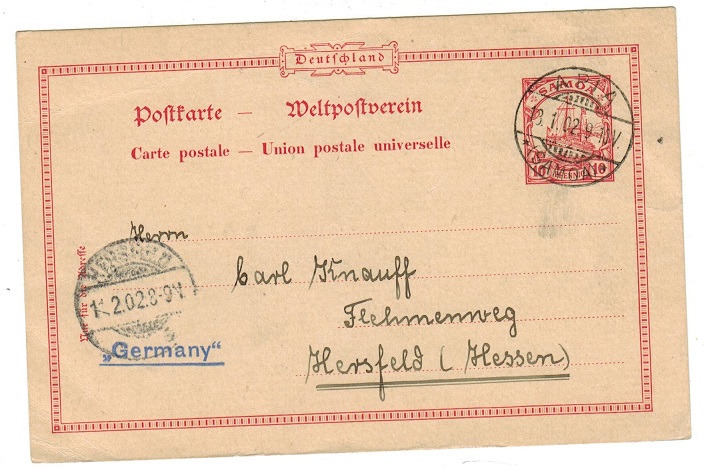 Deutschland
Postkarte — Weltpostverein
Carte postale — Union postale universelle
SAMOA
10 PFENNIG 10
APIA
13.1.02.9-10V.
* SAMOA *
Herrn
Carl Knauff
Flehmenweg
Hersfeld (Hessen)
Nur für die Adresse
HERSFELD
2.02.8-9V
„Germany“